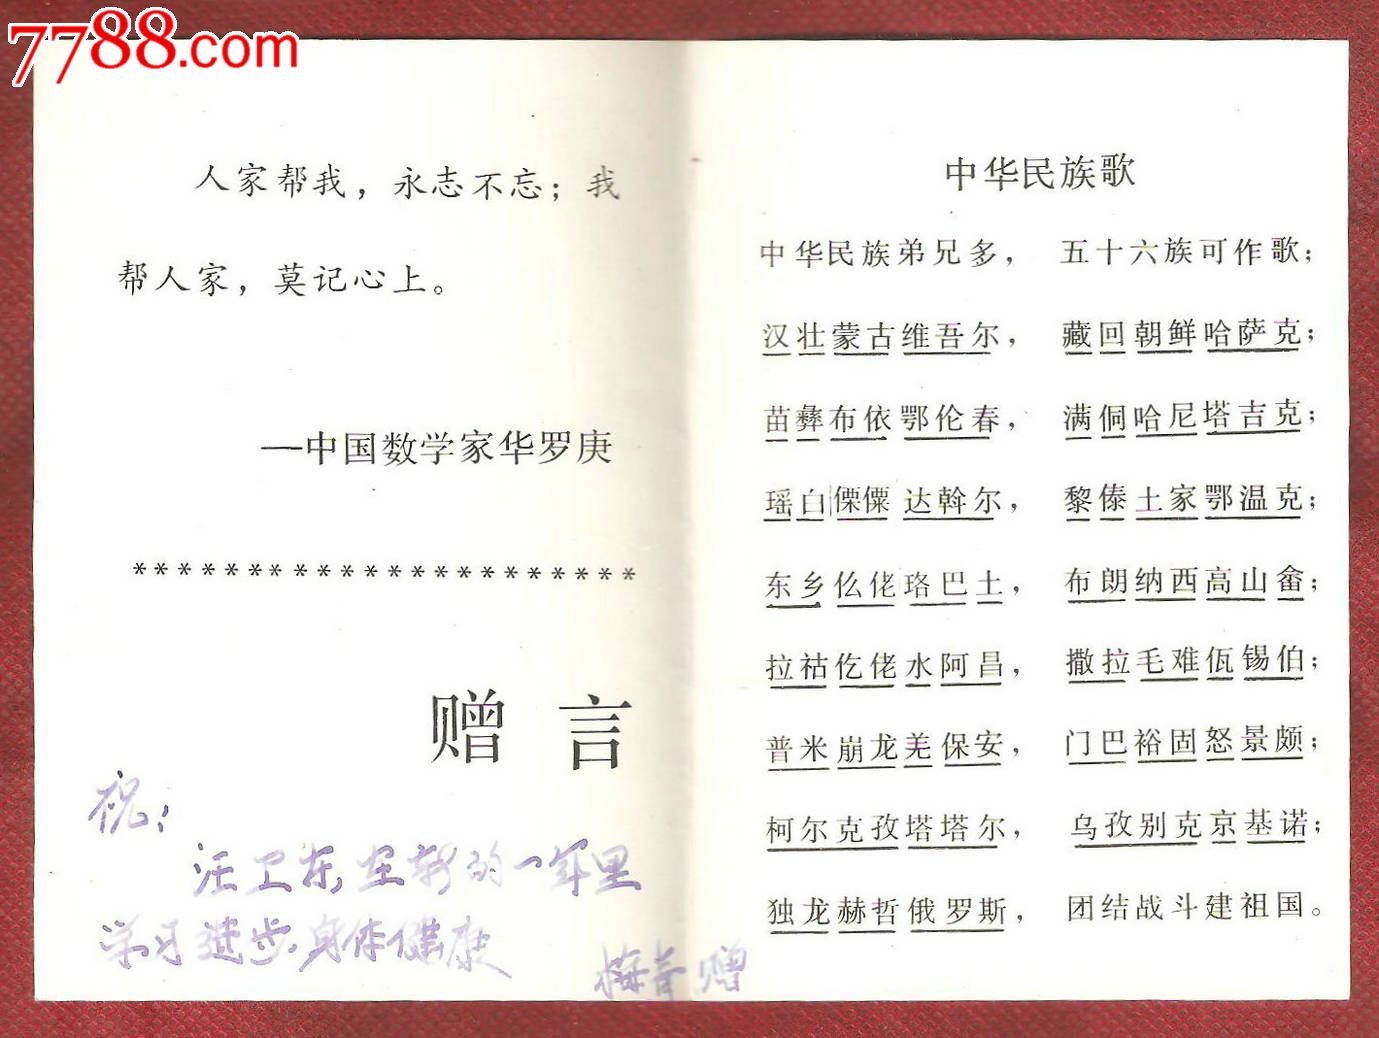 7788.com
人家帮我，永志不忘；我
帮人家，莫记心上。
—中国数学家华罗庚
***********************
赠言
祝：
汪卫东，在新的一年里
学习进步，身体健康
梅青赠
中华民族歌
中华民族弟兄多， 五十六族可作歌；
汉壮蒙古维吾尔， 藏回朝鲜哈萨克；
苗彝布依鄂伦春， 满侗哈尼塔吉克；
瑶白傈僳达斡尔， 黎傣土家鄂温克；
东乡仫佬珞巴土， 布朗纳西高山畲；
拉祜仡佬水阿昌， 撒拉毛难佤锡伯；
普米崩龙羌保安， 门巴裕固怒景颇；
柯尔克孜塔塔尔， 乌孜别克京基诺；
独龙赫哲俄罗斯， 团结战斗建祖国。